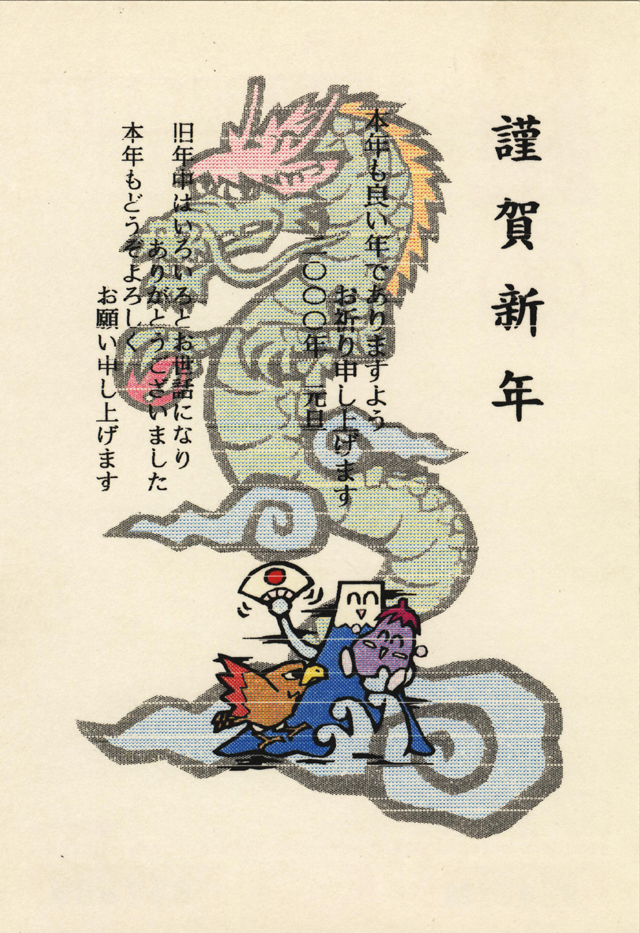 謹賀新年
本年も良い年でありますよう
お祈り申し上げます
二〇〇〇年 元旦
旧年中はいろいろとお世話になり
ありがとうございました
本年もどうぞよろしく
お願い申し上げます